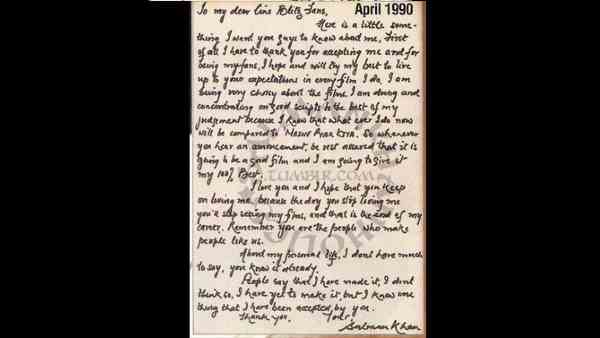 April 1990
To my dear Cine Blitz Fans,
Here is a little some-
thing I want you guys to know about me, First
of all I have to thank you for accepting me and for
being my fans, I hope and will try my best to live
up to your expectations in every film I do, I am
being very choosy about the films I am doing and
concentrating on good scripts to the best of my
judgment because I know that what ever I do now
will be compared to "MAINE PYAR KIYA. So whenever
you hear an announcement, be rest assured that it is
going to be a good film and I am going to give it
my 100% Best.
TUMBLR.COM
I love you and I hope that you keep
on loving me, because the day you stop loving me
you'll stop seeing my films, and that is the end of my
career. Remember you are the people who make
people like us.
About my personal life, I dont have much
to say, you know it already.
People say that I have made it, I dont
think so, I have yet to make it, but I know one
thing that I have been accepted by you.
Thank you. Yours
Salmaan Khan